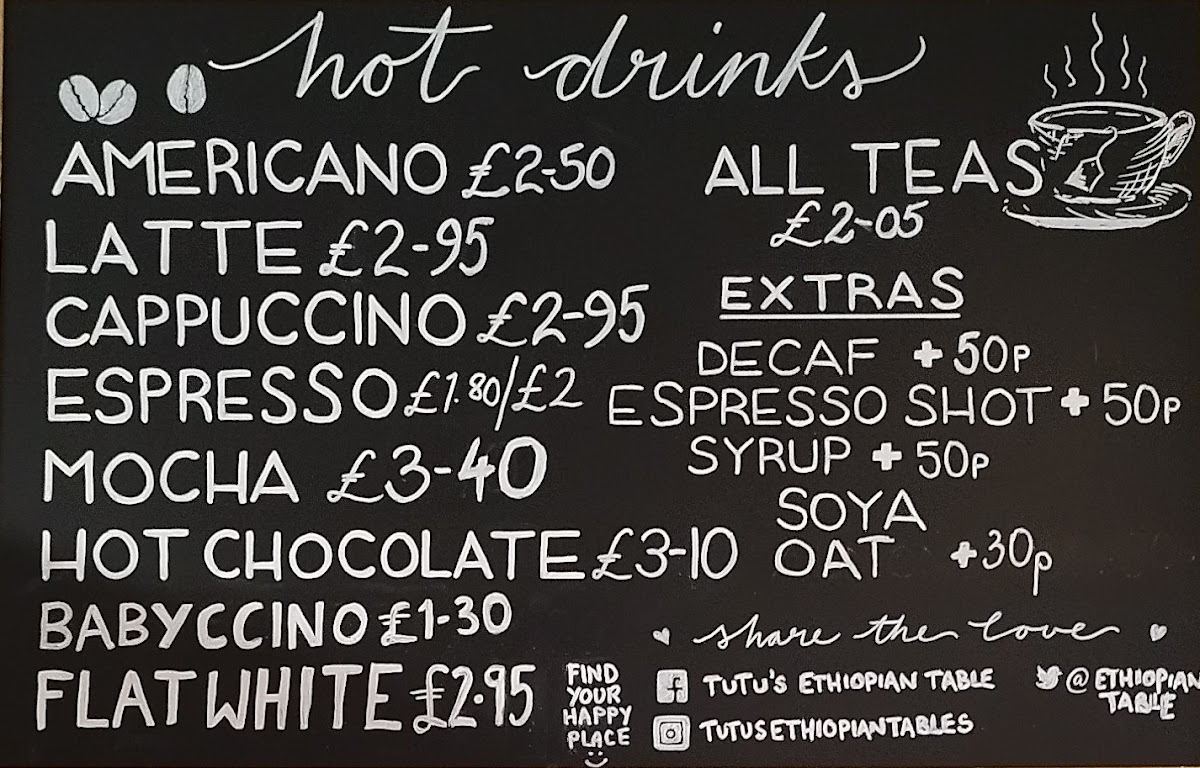 hot drinks
AMERICANO £2-50
LATTE £2-95
CAPPUCCINO £2-95
ESPRESSO £1.80/£2
MOCHA £3-40
HOT CHOCOLATE £3-10
BABYCCINO £1-30
FLAT WHITE £2.95
ALL TEAS
£2-05
EXTRAS
DECAF +50p
ESPRESSO SHOT +50p
SYRUP +50p
SOYA
OAT +30p
FIND
YOUR
HAPPY
PLACE
share the love
TUTU'S ETHIOPIAN TABLE
TUTUSETHIOPIANTABLES
@ETHIOPIAN
TABLE